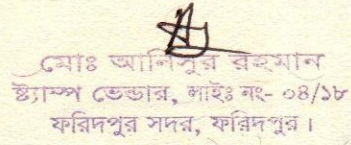 মোঃ আনিসুর রহমান
ষ্ট্যাম্প ভেন্ডার, লাইঃ নং- ০৪/১৮
ফরিদপুর সদর, ফরিদপুর।